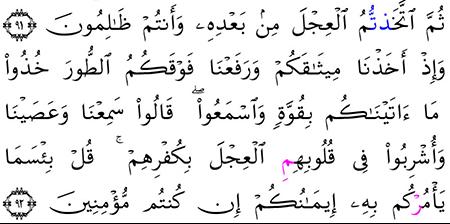 ثُمَّ ٱتَّخَذتُّمُ ٱلْعِجْلَ مِنۢ بَعْدِهِۦ وَأَنتُمْ ظَٰلِمُونَ ۝٩١
وَإِذْ أَخَذْنَا مِيثَٰقَكُمْ وَرَفَعْنَا فَوْقَكُمُ ٱلطُّورَ خُذُوا۟
مَا ءَاتَيْنَٰكُم بِقُوَّةٍ وَٱسْمَعُوا۟ۖ قَالُوا۟ سَمِعْنَا وَعَصَيْنَا
وَأُشْرِبُوا۟ فِى قُلُوبِهِمِ ٱلْعِجْلَ بِكُفْرِهِمْۚ قُلْ بِئْسَمَا
يَأْمُرْكُم بِهِۦٓ إِيمَٰنُكُمْ إِن كُنتُم مُّؤْمِنِينَ ۝٩٢